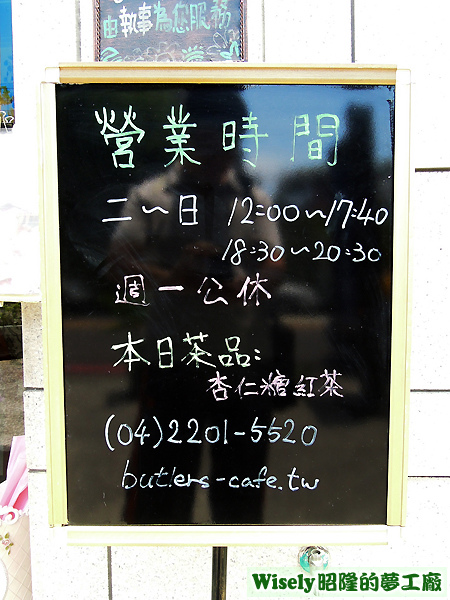 由執事為您服務
營業時間
二～日 12:00～17:40
18:30～20:30
週一公休
本日茶品:
杏仁糖紅茶
(04)2201-5520
butlers-cafe.tw
Wisely昭隆的夢工廠